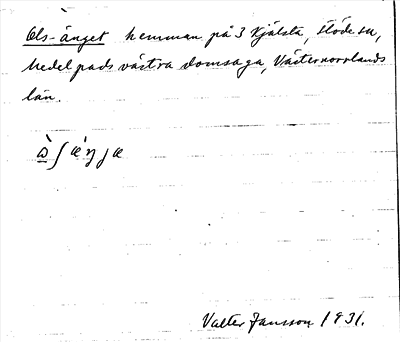 Ols-änget hemman på 3 Kjälsta, Stöde sn,
Medelpads västra domsaga, Västernorrlands
län.
Valter Jansson 1931.